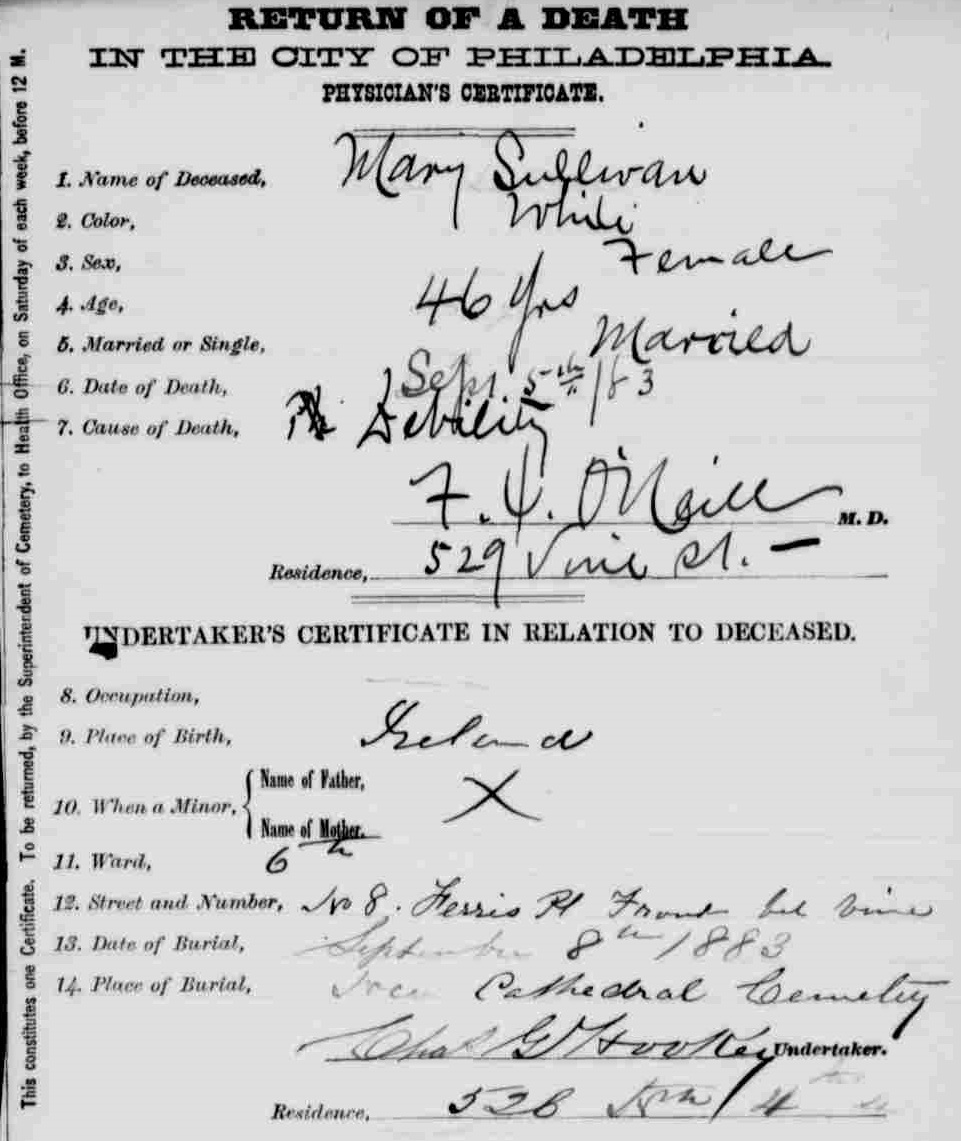 RETURN OF A DEATH
IN THE CITY OF PHILADELPHIA.
PHYSICIAN'S CERTIFICATE.
1. Name of Deceased, Mary Sullivan
2. Color, White
3. Sex, Female
4. Age, 46 Yrs
5. Married or Single, Married
6. Date of Death, Sept 5th 183
7. Cause of Death, Debility
F. O'Neill M. D.
Residence, 529 Vine St.
UNDERTAKER'S CERTIFICATE IN RELATION TO DECEASED.
8. Occupation,
9. Place of Birth, Ireland
10. When a Minor, { Name of Father, X
Name of Mother.
11. Ward, 6th
12. Street and Number, No 8. Ferris Pl Front bel Vine
13. Date of Burial, September 8th 1883
14. Place of Burial, Cathedral Cemetery
Chas G Hookey Undertaker.
Residence, 526 4th
This constitutes one Certificate. To be returned, by the Superintendent of Cemetery, to Health Office, on Saturday of each week, before 12 M.